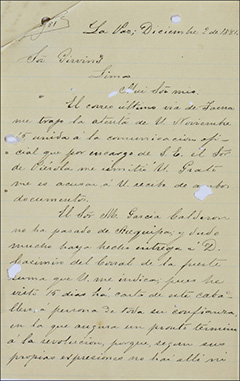 La Paz, Diciembre 2 de 188
Sor Pirvins
Lima
Mui Sor mio.
El correo último via de Tacna
me trajo la atenta de U. Noviembre
15 unida a la comunicacion ofi-
cial que por encargo de S. E. el Sor
de Piérola me remitió U. Grato
me es acusar á U. recibo de ambos
documentos.
El Sor M. Garcia Calderon
no ha pasado de Arequipa, y dudo
mucho haya hecho entrega á D.
del Corral de la fuerte
suma que U. me indica; pues he
visto 15 dias há, carta de este caba-
llero, a persona de toda su confianza,
en la que augura un pronto término
á la revolucion, porque, segun sus
propias expresiones no hai allí ni